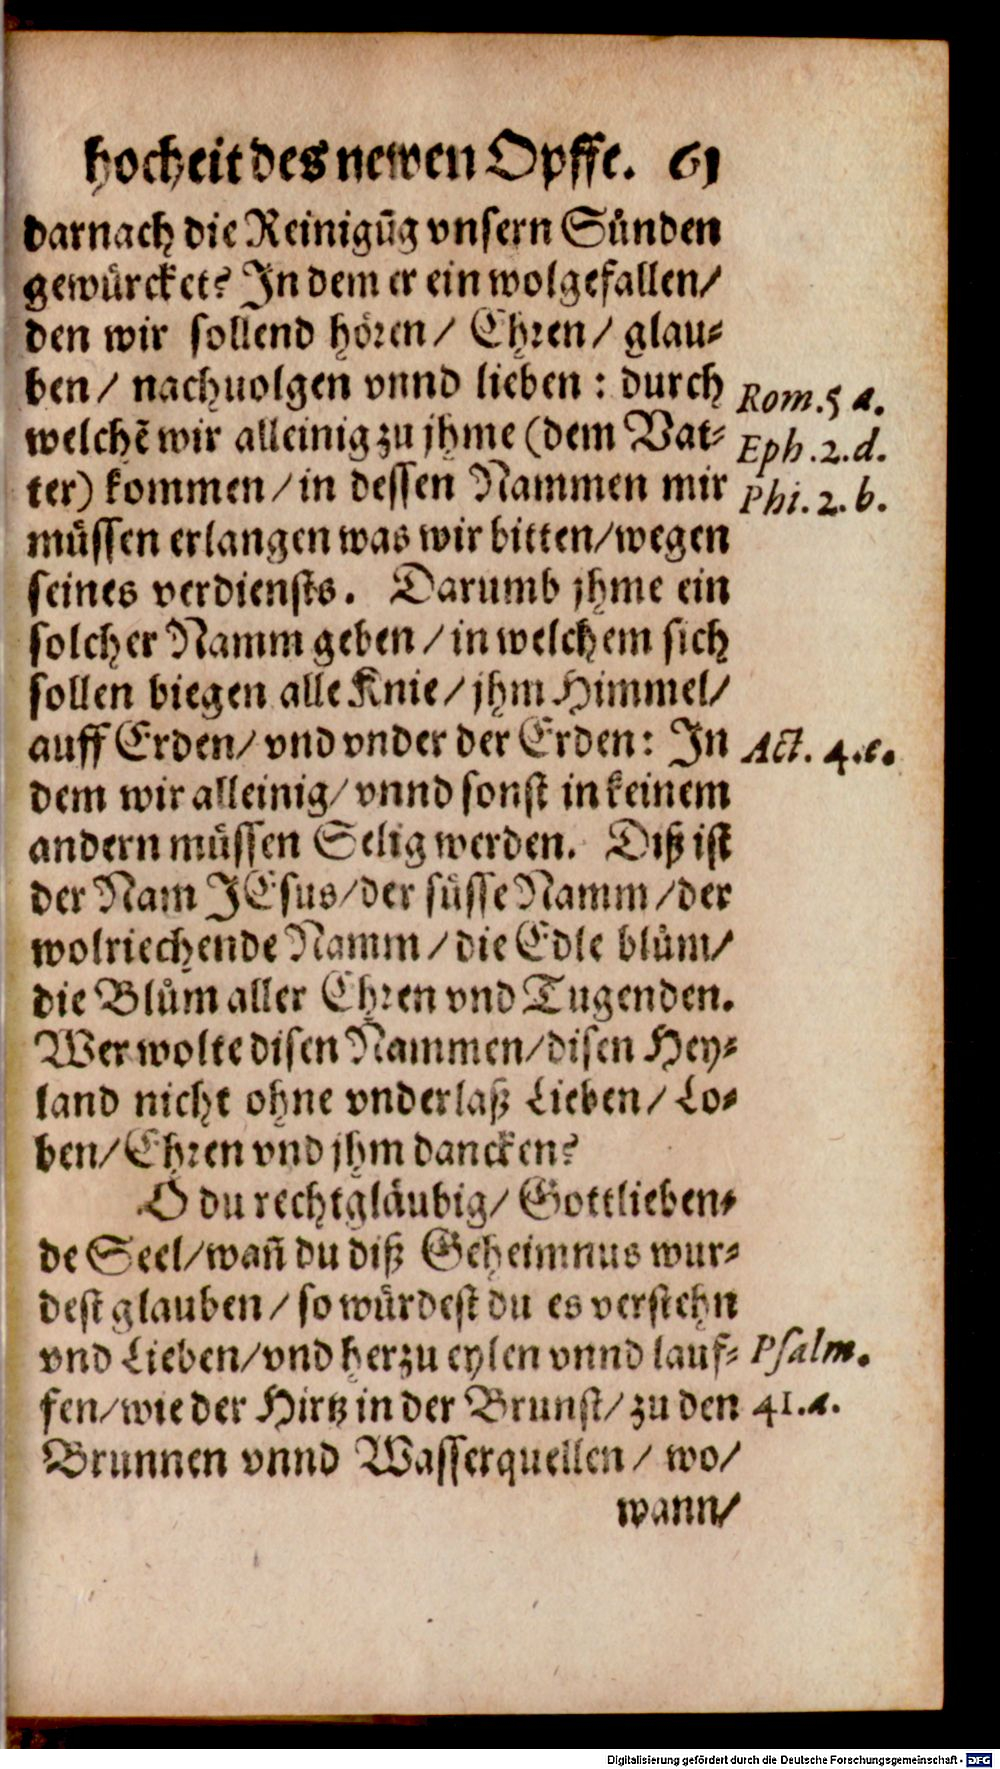 hocheit des newen Opffe. 61
darnach die Reinigūg vnsern Sünden
gewürcket? In dem er ein wolgefallen/
den wir sollend hören/ Ehren/ glau-
ben/ nachuolgen vnnd lieben : durch
Rom. 5 a.
welchē wir alleinig zu jhme (dem Vat-
Eph. 2. d.
ter) kommen/ in dessen Nammen mir
Phi. 2. b.
müssen erlangen was wir bitten/wegen
seines verdiensts. Darumb jhme ein
solcher Namm geben/ in welchem sich
sollen biegen alle Knie/ jhm Himmel/
auff Erden/ vnd vnder der Erden: In
Act. 4. e.
dem wir alleinig/ vnnd sonst in keinem
andern müssen Selig werden. Diß ist
der Nam JEsus/der süsse Namm/der
wolriechende Namm/ die Edle blům/
die Blům aller Ehren vnd Tugenden.
Wer wolte disen Nammen/disen Hey-
land nicht ohne vnderlaß Lieben/ Lo-
ben/ Ehren vnd jhm dancken?
O du rechtgläubig/ Gottlieben-
de Seel/wañ du diß Geheimnus wur-
dest glauben/ so würdest du es verstehn
vnd Lieben/vnd herzu eylen vnnd lauf-
Psalm.
fen/wie der Hirtz in der Brunst/ zu den
41. a.
Brunnen vnnd Wasserquellen/ wo/
wann/
Digitalisierung gefördert durch die Deutsche Forschungsgemeinschaft - DFG